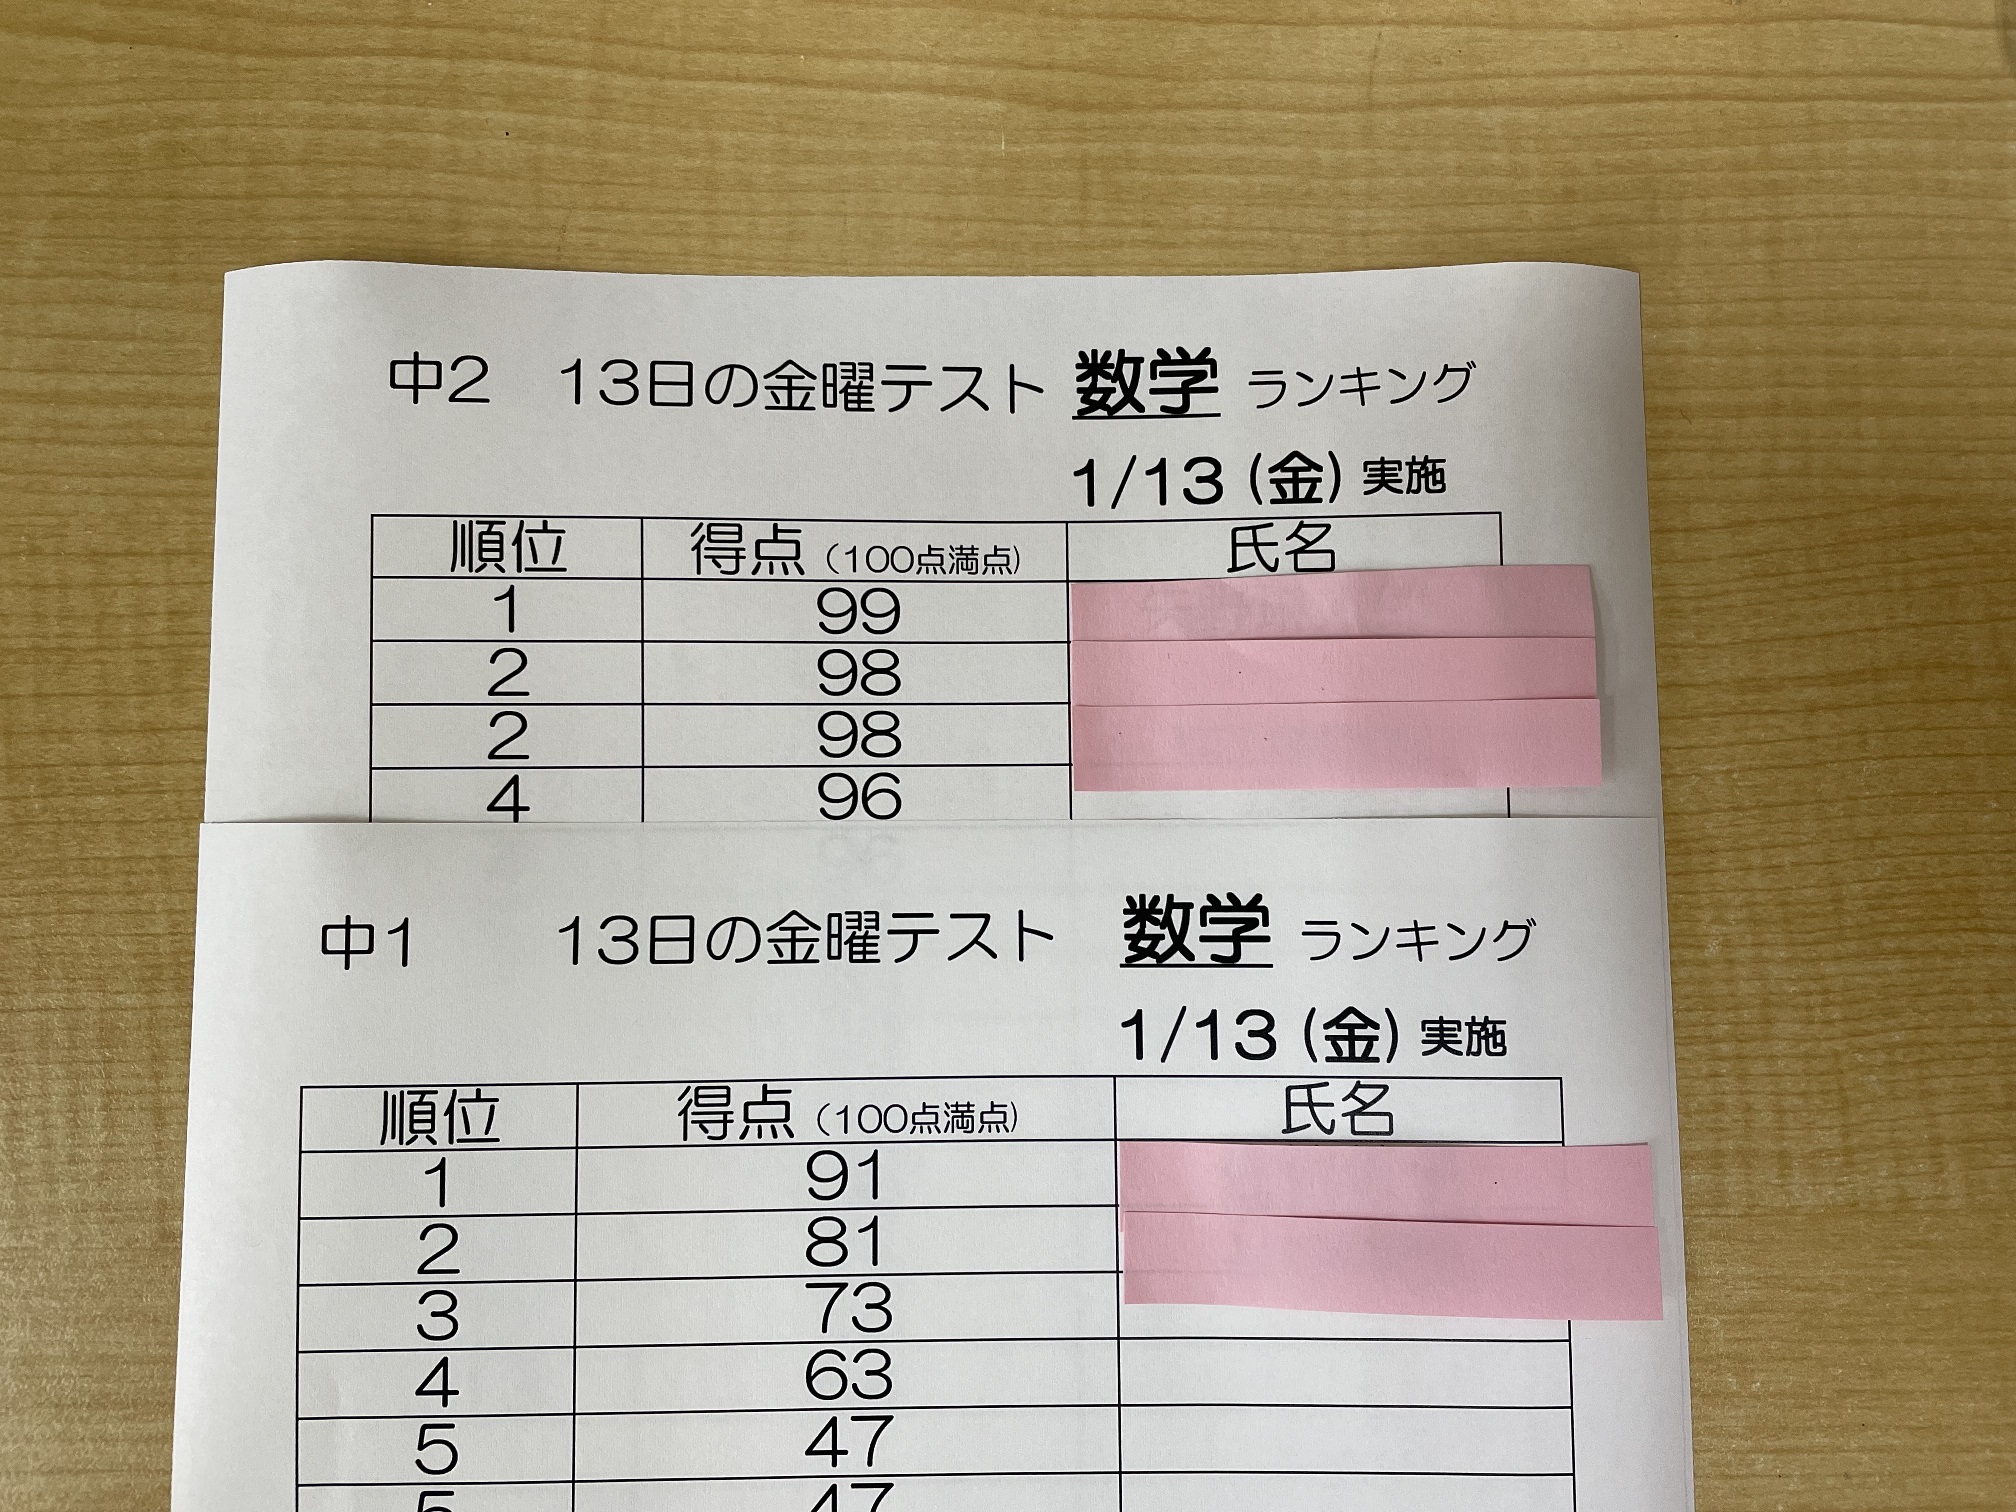 中2　13日の金曜テスト 数学 ランキング
1/13(金)実施
順位 得点（100点満点） 氏名
1 99
2 98
2 98
4 96
中1　13日の金曜テスト 数学 ランキング
1/13(金)実施
順位 得点（100点満点） 氏名
1 91
2 81
3 73
4 63
5 47
5 47